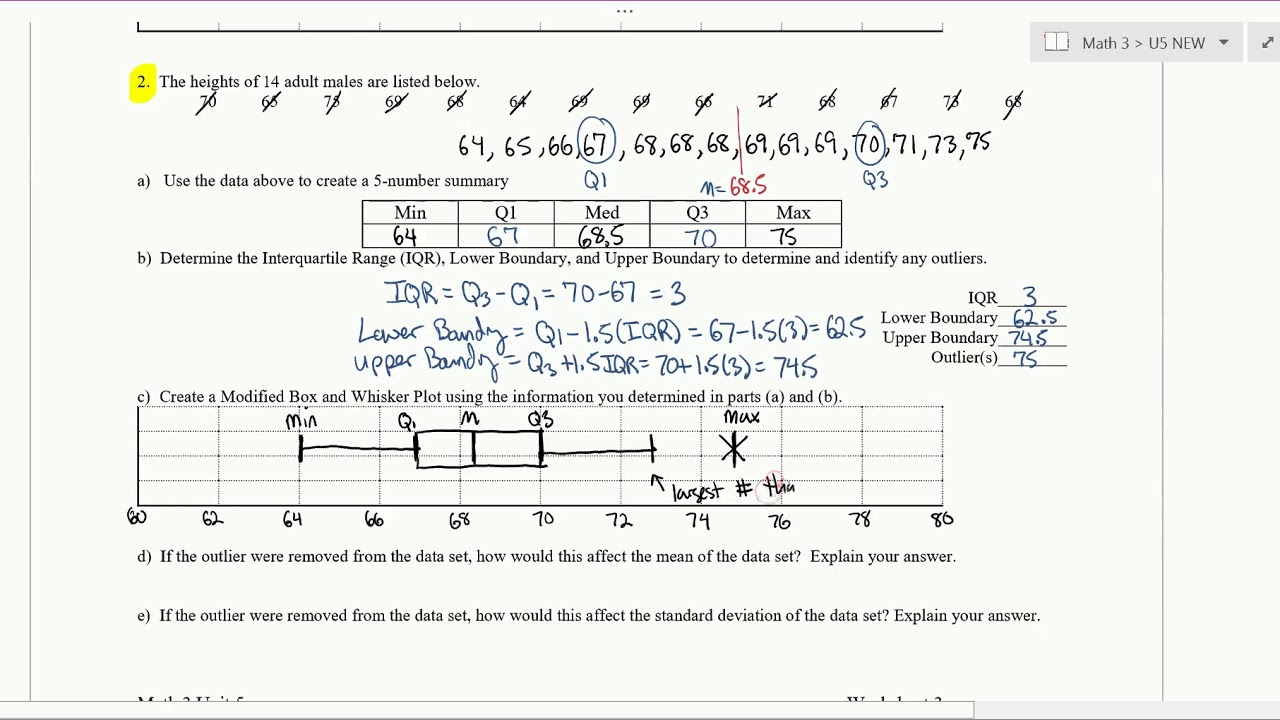 Math 3 > U5 NEW
2. The heights of 14 adult males are listed below.
70 65 73 69 68 64 69 69 66 71 68 67 73 68
64, 65, 66, 67, 68, 68, 68, 69, 69, 69, 70, 71, 73, 75
a) Use the data above to create a 5-number summary
Q1 M= 68.5 Q3
Min Q1 Med Q3 Max
64 67 68.5 70 75
b) Determine the Interquartile Range (IQR), Lower Boundary, and Upper Boundary to determine and identify any outliers.
IQR = Q3 - Q1 = 70-67 = 3
IQR 3
Lower Boundry = Q1 - 1.5(IQR) = 67-1.5(3) = 62.5
Lower Boundary 62.5
Upper Boundry = Q3 + 1.5 IQR = 70+1.5(3) = 74.5
Upper Boundary 74.5
Outlier(s) 75
c) Create a Modified Box and Whisker Plot using the information you determined in parts (a) and (b).
min Q1 M Q3 max
largest # tha
60 62 64 66 68 70 72 74 76 78 80
d) If the outlier were removed from the data set, how would this affect the mean of the data set? Explain your answer.
e) If the outlier were removed from the data set, how would this affect the standard deviation of the data set? Explain your answer.